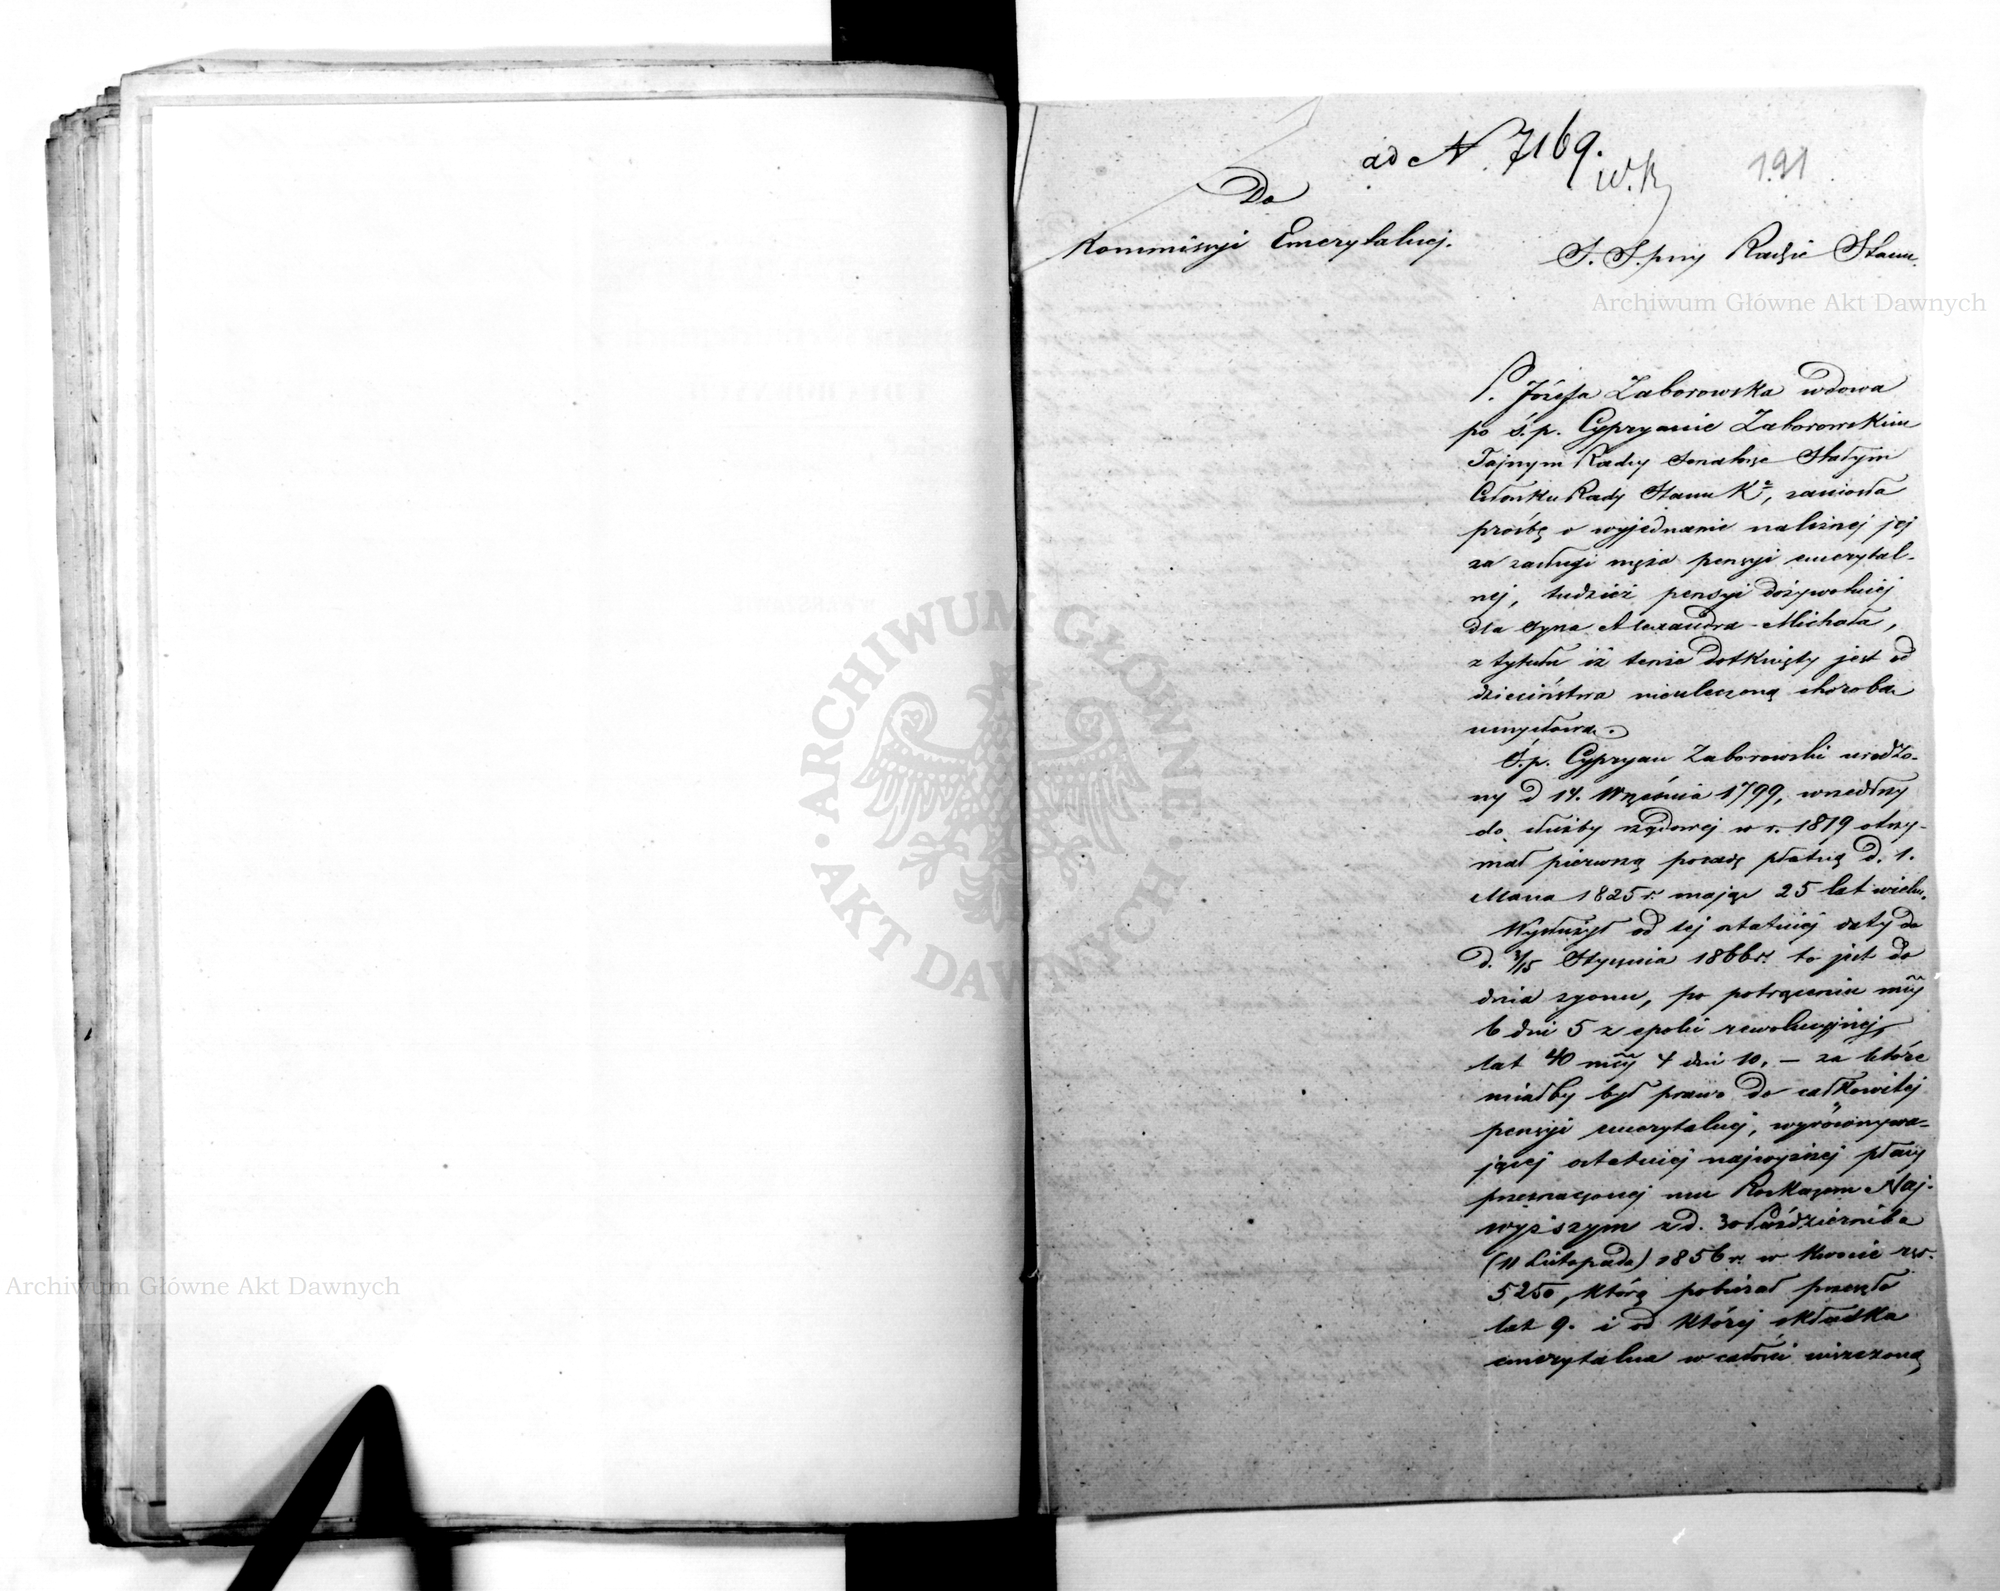 ad N. 7169.
W. K.
191
Do
Kommissyi Emerytalnej.
S. S. przy Radzie Stanu.
P. Józefa Zaborowska wdowa
po ś. p. Cypryanie Zaborowskim
Tajnym Radcy Senatorze Stałym
Członku Rady Stanu Kr, zaniosła
prośbę o wyjednanie należnej jej
za zasługi męża pensyi emerytal-
nej, tudzież pensyi dożywotniej
dla syna Alexandra-Michała,
z tytułu iż tenże dotknięty jest od
dzieciństwa nieuleczoną chorobą
umysłową.
Ś. p. Cypryan Zaborowski urodzo-
ny d 14. Września 1799, wszedłszy
do służby rządowej w r. 1819 otrzy-
mał pierwszą posadę płatną d. 1.
Marca 1825 r. mając 25 lat wieku.
Wysłużył od tej ostatniej daty do
d. 3/15 Stycznia 1866 r. to jest do
dnia zgonu, po potrąceniu mcy
6 dni 5 z epoki rewolucyjnej,
lat 40 mcy 4 dni 10. — za które
miałby był prawo do całkowitej
pensyi emerytalnej, wyrównywa-
jącej ostatniej najwyższej płacy
przeznaczonej mu Rozkazem Naj-
wyższym z d. 30 Października
(11 Listopada) 1856 r. w kwocie rsr.
5250, którą pobierał przeszło
lat 9. i od której składka
emerytalna w całości uiszczoną
Archiwum Główne Akt Dawnych
Archiwum Główne Akt Dawnych
ARCHIWUM GŁÓWNE
AKT DAWNYCH